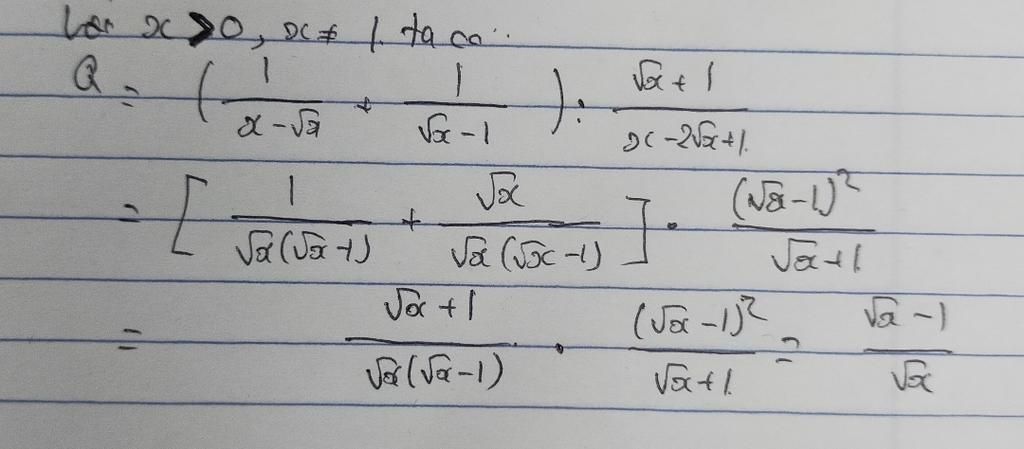 Với x > 0, x ≠ 1. ta có:
Q = ( 1/(x - √x) + 1/(√x - 1) ) : (√x + 1)/(x - 2√x + 1)
= [ 1/(√x(√x - 1)) + √x/(√x(√x - 1)) ] . (√x - 1)²/(√x + 1)
= (√x + 1)/(√x(√x - 1)) . (√x - 1)²/(√x + 1) = (√x - 1)/√x